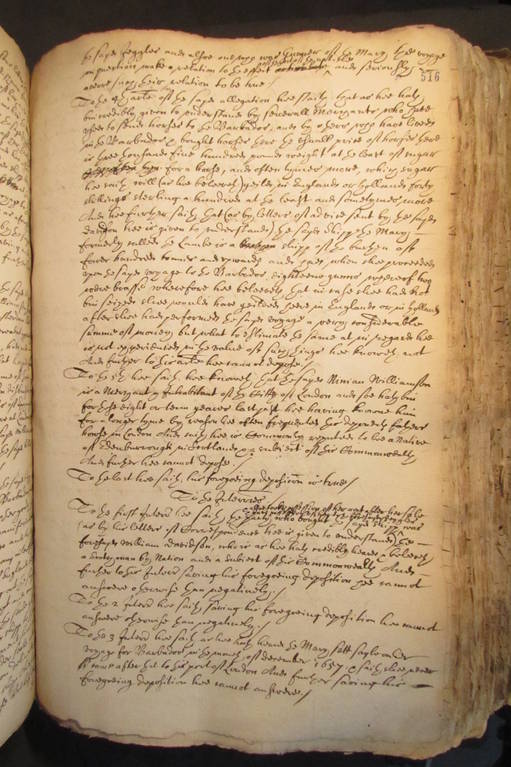 he sayd Zeggler and alsoe one who was Gunner of the Mary the voyage
in question, make a relation to the effect and seriously
averre sayd their relation to be true /
516
To the 9th article of the sayd allegation hee saith that as hee hath
bin credibly given to understand by severall Marchants who have
used to send horses to the Barbadoes, and by others who have lived
in the Barbadoes & bought horses there the usuall price of horses there
is two thousand five hundred pounds weight at the least of sugar
for a horse, and often tymes more, which sugar
hee saith will (as hee beleeveth) yeild in England or Holland forty
shillings sterling a hundred at the least and sometymes more
And hee further saith that (as by letters of advice sent by the sayd
hee is given to understand) the sayd shipp the Mary
formerly called the Lambe is a shipp of the burthen of
fower hundred tonnes and upwards and had when shee proceeded
upon the sayd voyage to the Barbadoes eighteene gunns whereof two
were brasse wherefore hee beleeveth that in case shee had not
bin seized shee would have yeilded here in England or in Holland
after shee had performed the sayd voyage a very considerable
summe of money, but what to estimate the same at in regard hee
is not experienced in the value of such things hee knoweth not
And further to this article hee cannot depose /
To the hee saith hee knoweth the sayd Ninian Williamson
is a Marchant & Inhabitant of the Citty of London and soe hath bin
for these eight or tenn yeares last past hee having knowne him
for a longer tyme by reason hee often frequented this deponents fathers
house in London And saith hee is Commonly reputed to bee a Native
of Edenburough in Scotland & a subiect of this Commonwealth
And further hee cannot depose.
To the last hee saith his foregoeing deposition is true /
To the Interries
To the first Interrie hee saith the party who bought the sayd shipp was
(as by his letters of Correspondence hee is given to understand) the
foresayd William Davidson, who is as hee hath credibly heard & beleeveth
a Scotchman by Nation and a subiect of this Commonwealth And
further to this Interrie saving his foregoeing deposition hee cannot
answere otherwise than negatively. /
To the 2 Interrie hee saith saving his foregoeing deposition hee cannot
answere otherwise than negatively. /
To the 3 Interrie hee saith as hee hath heard the Mary sett sayle on her
voyage for Barbadoes in the moneth of december 1657 & saith shee never
came after that to this port of London And further saving his
foregoeing deposition hee cannot answere. /